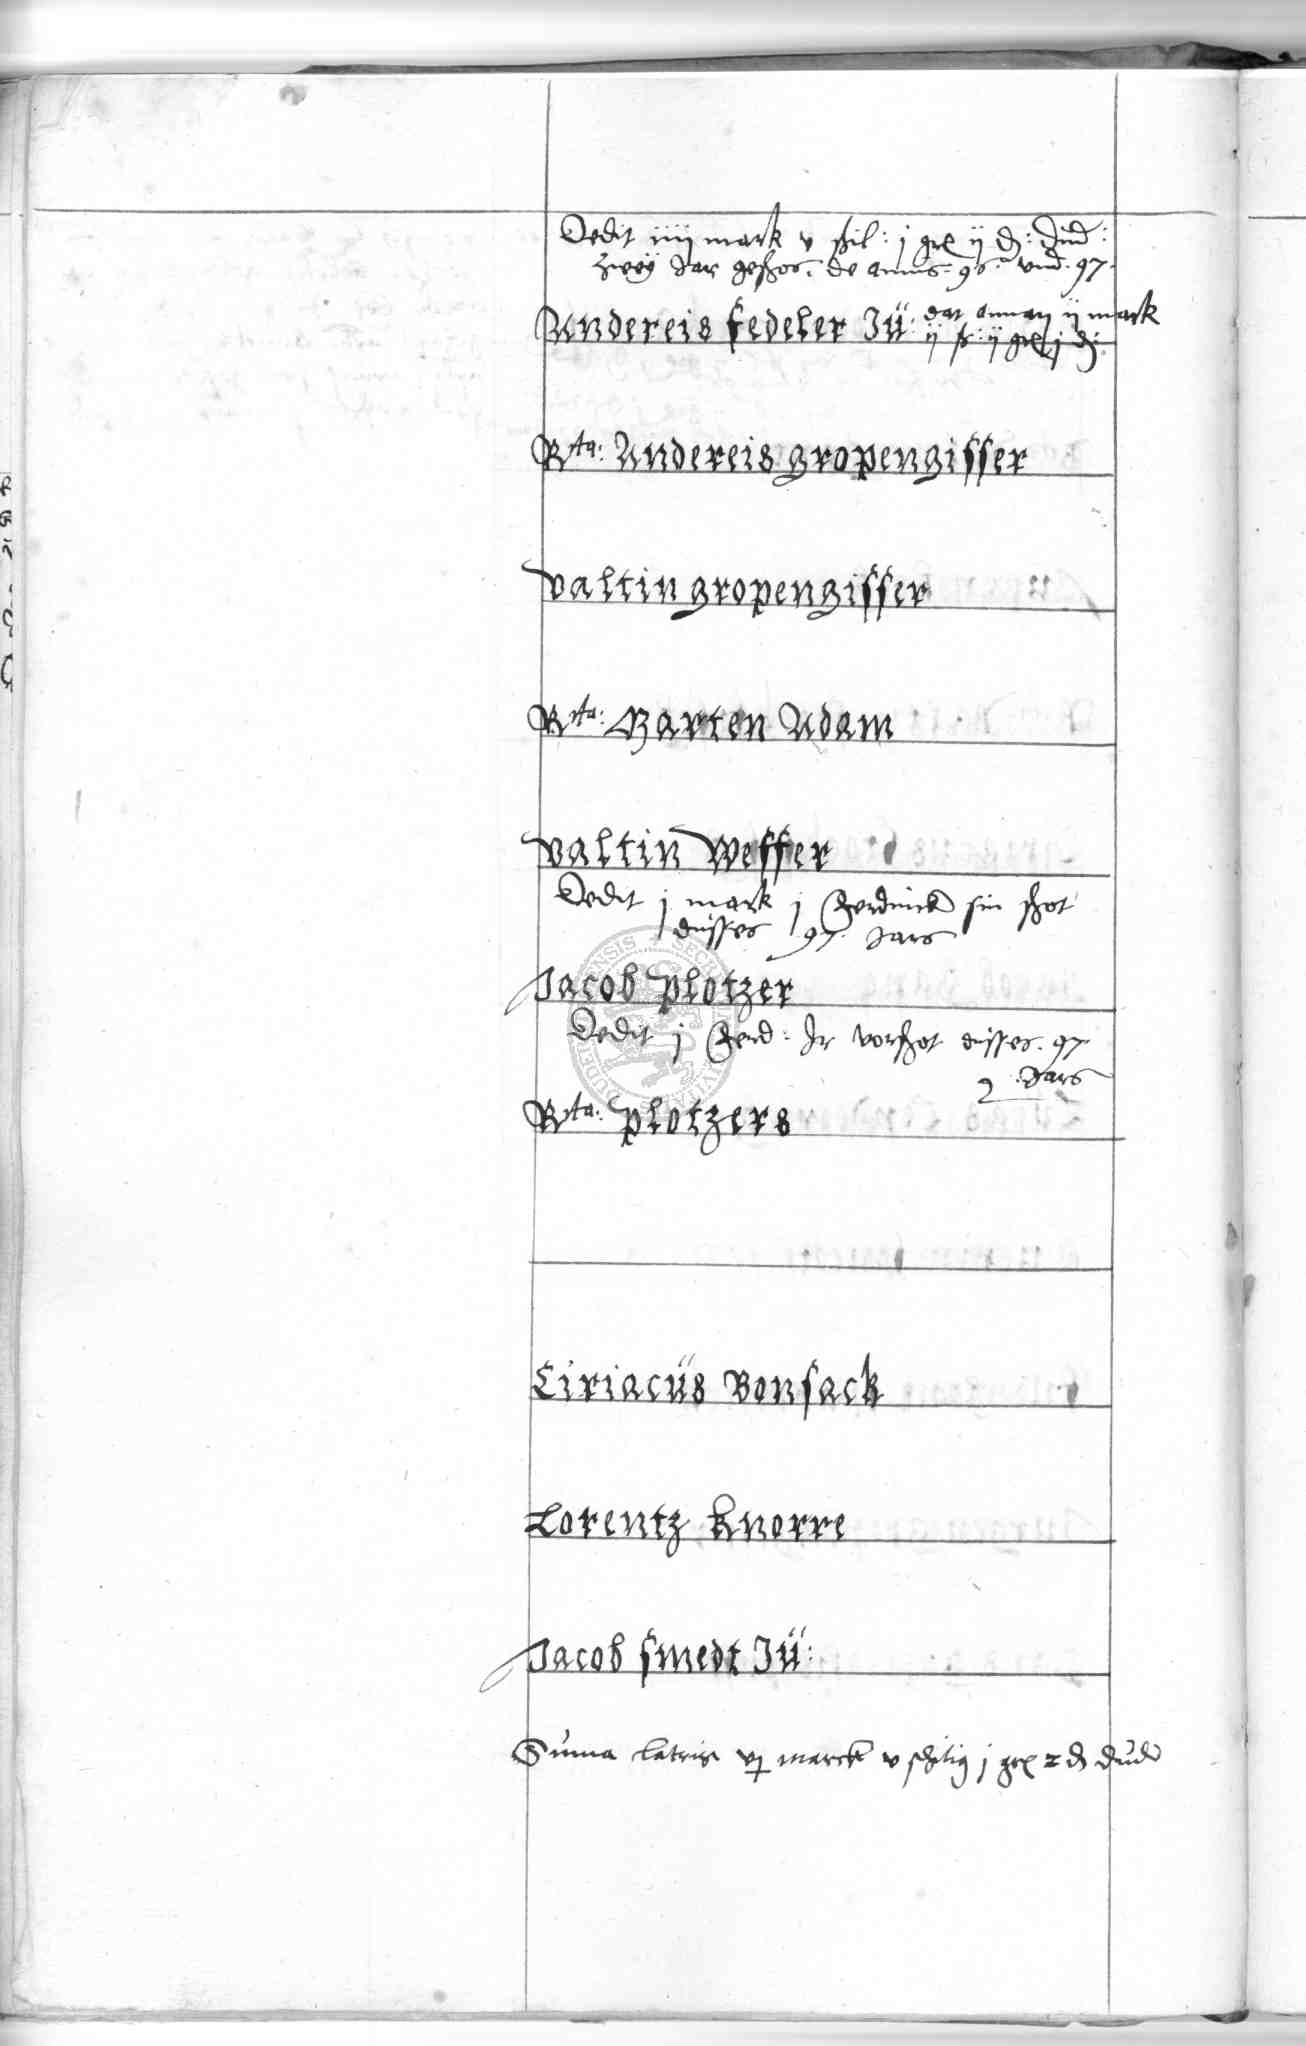 Dedit iiij mark v ßil: j gr ij d: Dud:
zweÿ Jar geschos. de annis. 96. vnd. 97.
Andereis fedeler Jü: dat annan ij mark
ij ß: ij gr j d:
Rta: Andereis gropengisser
valtin gropengisser
Rta: Marten Adam
valtin Weffer
Dedit j mark j ferdinck sin schot
disses 97 Jars
Jacob plotzer
Dedit j Ferd: Ir vorschot disses. 97
Jars
Rta: plotzers
Ciriacüs Bonsack
Lorentz knorre
Jacob smedt Jü:
Suma lateris vj marck v schilig j gr 2 d dud